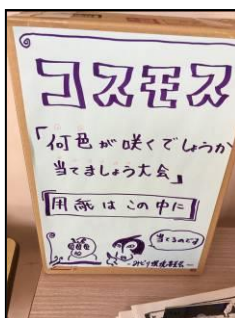 コスモス
「何色が咲くでしょうか
当てましょう大会」
用紙はこの中に
当てるのだよ